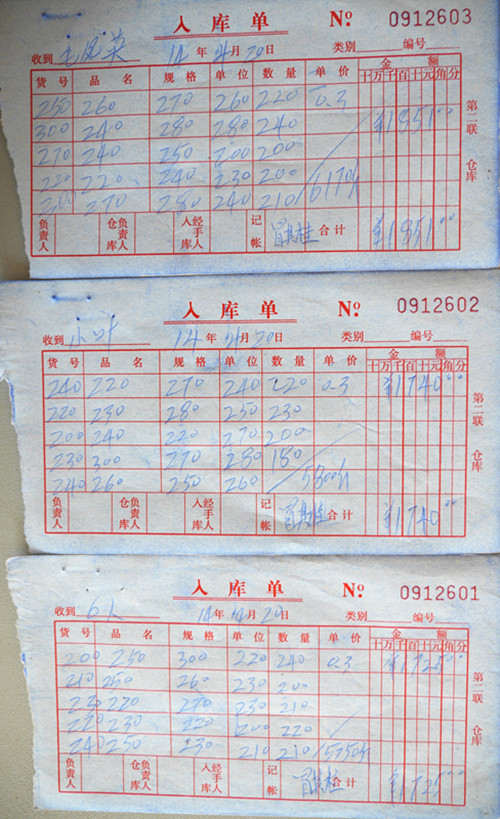 入库单 Nº 0912603
收到 毛凤英 14年4月20日 类别 编号
货号 品名 规格 单位 数量 单价 金额
十万千百十元角分
250 260 270 260 220 0.3 ¥185100
300 240 280 280 240
270 240 250 200 200
220 220 240 230 200
270 280 240 210 6170
负责人 仓库负责人 入库经手人 记帐 合计 ¥185100
第二联 仓库
入库单 Nº 0912602
收到 小叶 14年4月20日 类别 编号
货号 品名 规格 单位 数量 单价 金额
十万千百十元角分
240 220 270 240 220 0.3 ¥174000
220 230 280 250 230
200 240 220 270 200
230 300 270 280 180
240 260 250 260 5800
负责人 仓库负责人 入库经手人 记帐 合计 ¥174000
第二联 仓库
入库单 Nº 0912601
收到 14年4月20日 类别 编号
货号 品名 规格 单位 数量 单价 金额
十万千百十元角分
200 250 300 220 240 0.3 ¥172500
210 250 260 230 200
230 220 270 230 210
220 230 220 200 220
240 250 230 210 210 5750
负责人 仓库负责人 入库经手人 记帐 合计 ¥172500
第二联 仓库